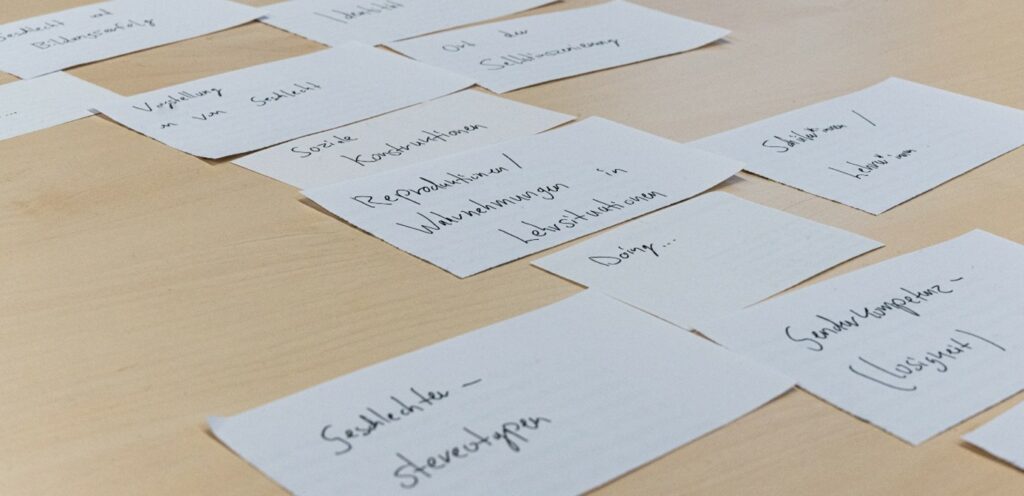 Geschlecht und
Bildungserfolg
Identität
Ort der
Selbstinszenierung
...
Vorstellung
von Geschlecht
Soziale
Konstruktionen
Reproduktionen/
Wahrnehmungen in
Lehrsituationen
Schüler*innen /
Lehrer*innen
Doing...
Genderkompetenz-
(losigkeit)
Geschlechter-
stereotypen